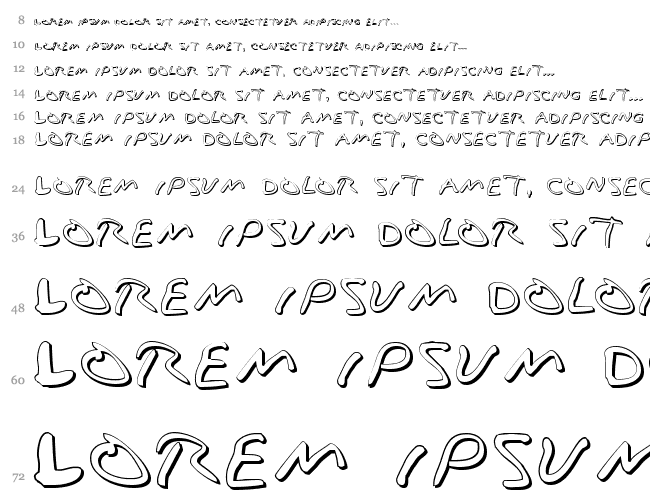 8 LOREM IPSUM DOLOR SIT AMET, CONSECTETUER ADIPISCING ELIT...
10 LOREM IPSUM DOLOR SIT AMET, CONSECTETUER ADIPISCING ELIT...
12 LOREM IPSUM DOLOR SIT AMET, CONSECTETUER ADIPISCING ELIT...
14 LOREM IPSUM DOLOR SIT AMET, CONSECTETUER ADIPISCING ELIT...
16 LOREM IPSUM DOLOR SIT AMET, CONSECTETUER ADIPISCING
18 LOREM IPSUM DOLOR SIT AMET, CONSECTETUER ADIP
24 LOREM IPSUM DOLOR SIT AMET, CONSEC
36 LOREM IPSUM DOLOR SIT
48 LOREM IPSUM DOLO
60 LOREM IPSUM DO
72 LOREM IPSU